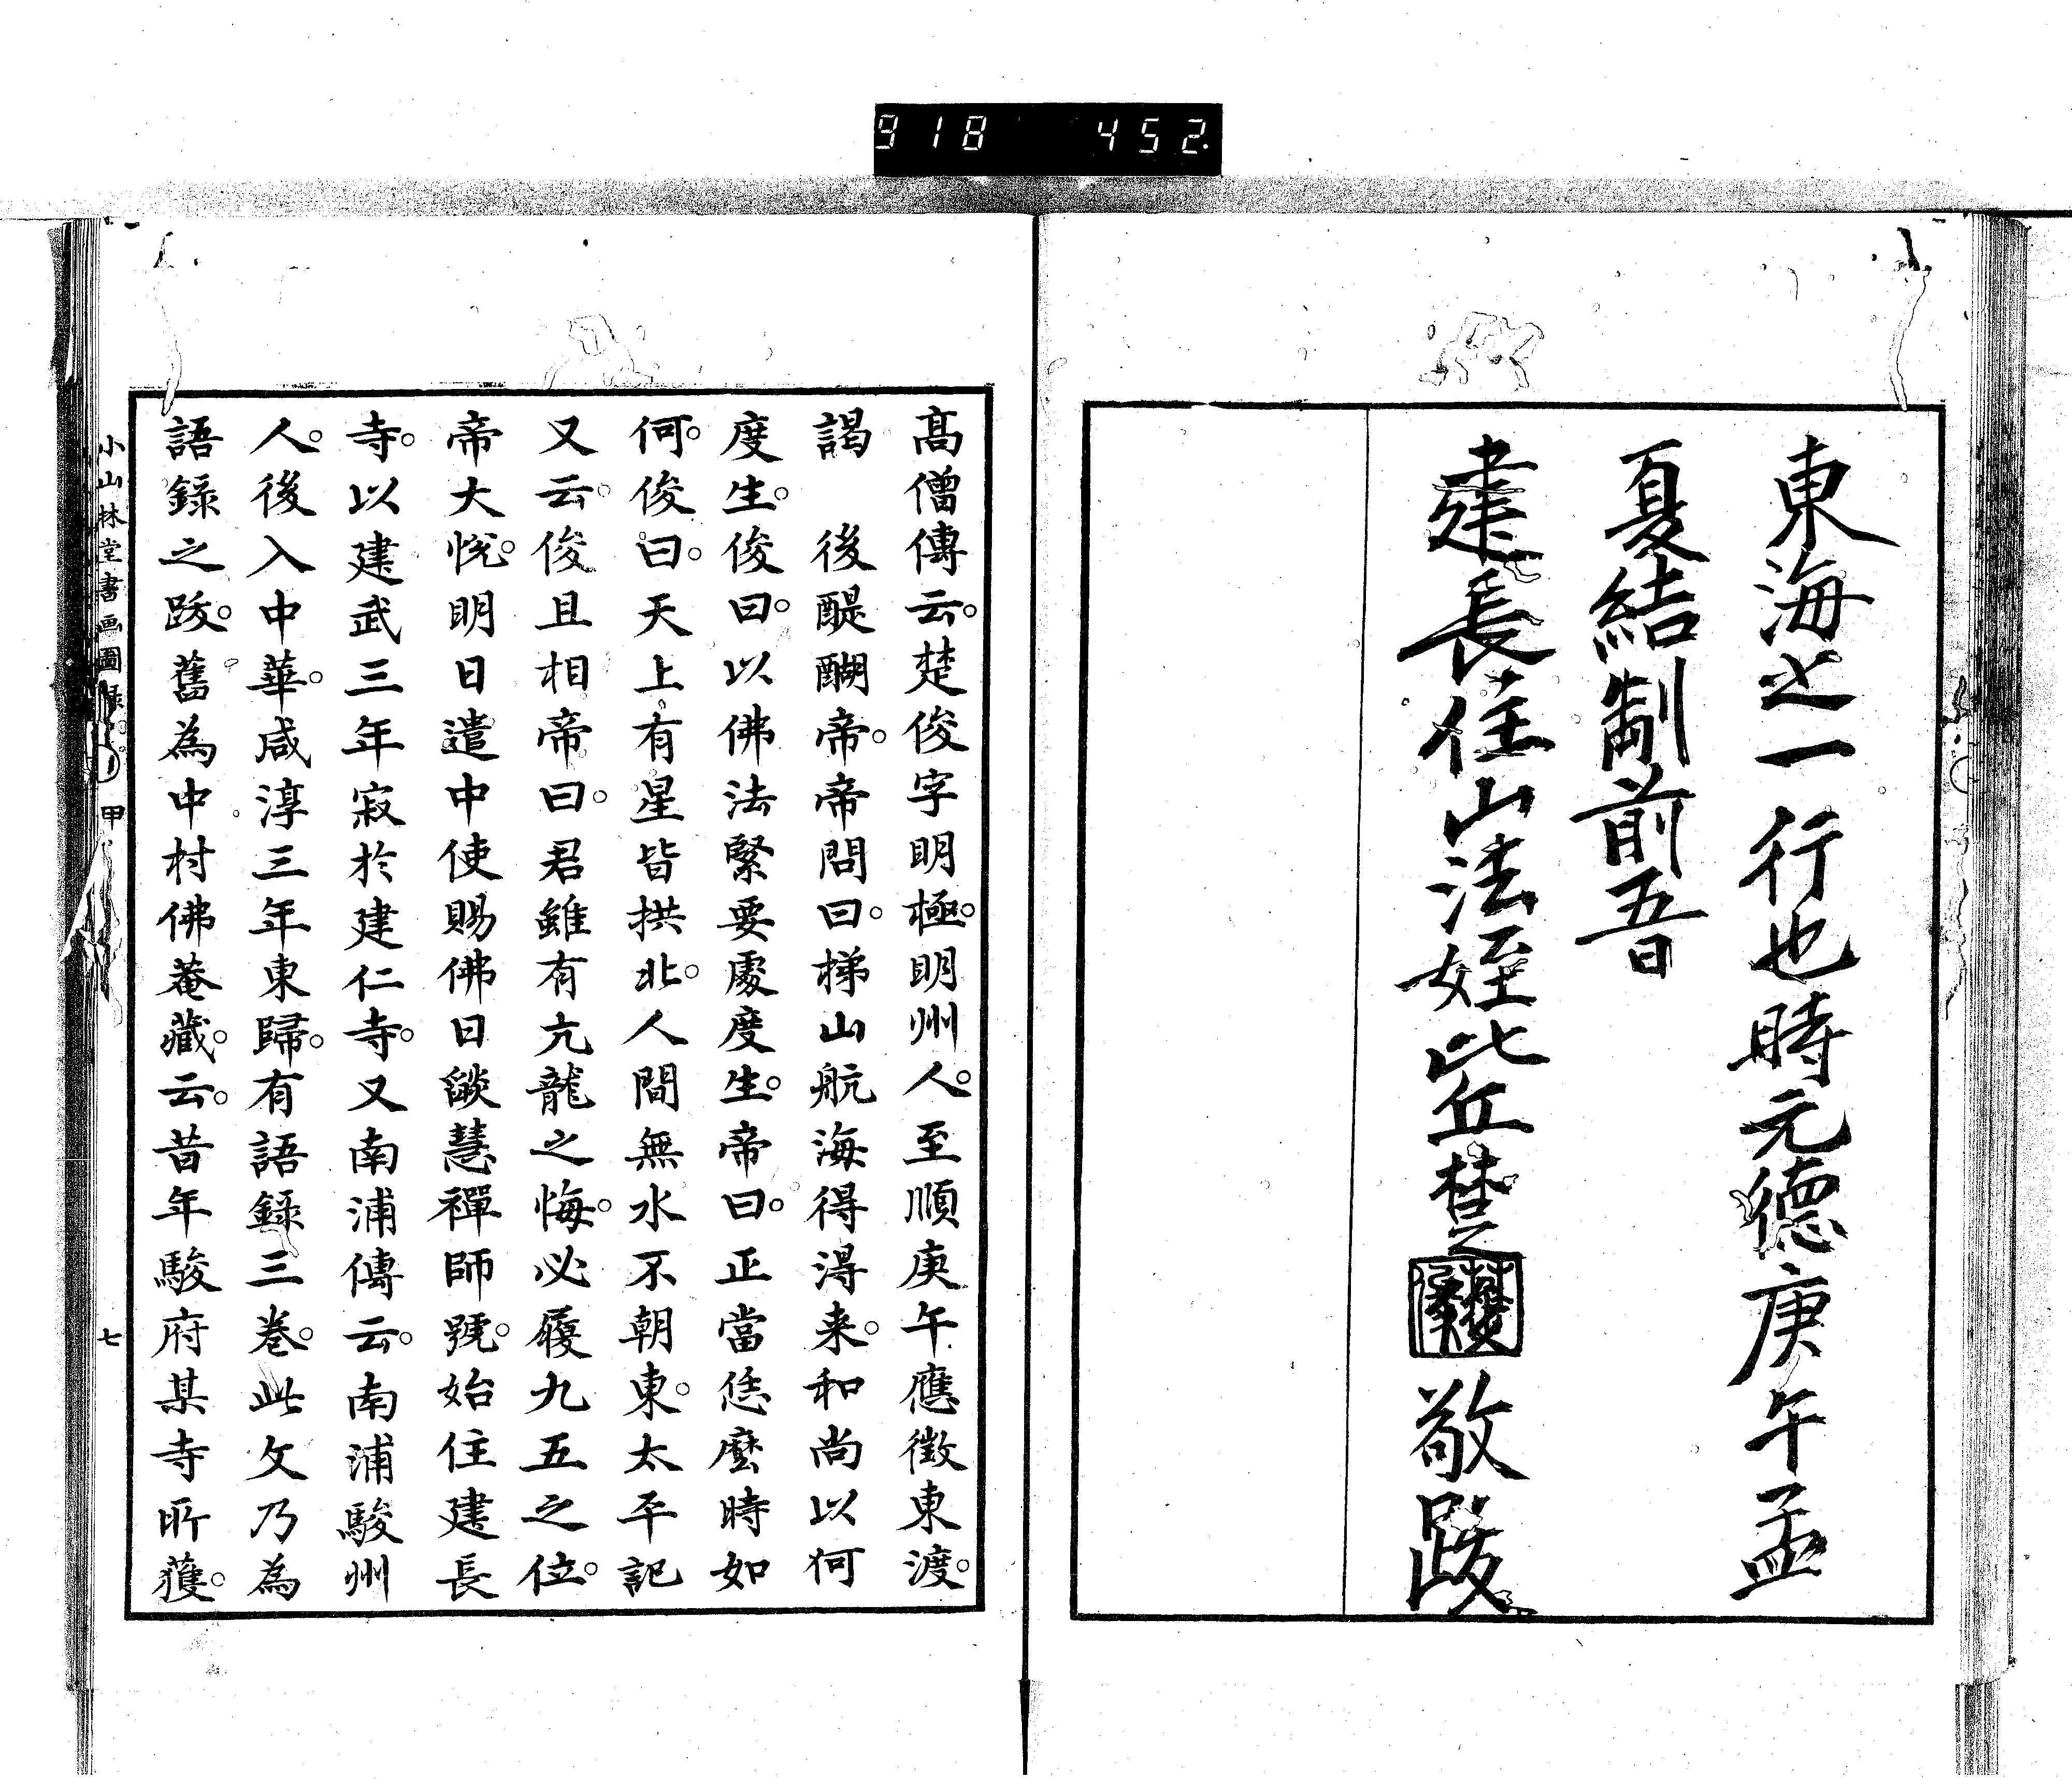 918 452
東海之一行也時元德庚午孟
夏結制前五日
建長住山法姪比丘楚
敬跋
高僧傳云。楚俊字明極。明州人。至順庚午應徵東渡。
謁　後醍醐帝。帝問曰。梯山航海得得来。和尚以何
度生。俊曰。以佛法緊要處度生。帝曰。正當恁麼時如
何。俊曰。天上有星皆拱北。人間無水不朝東。太平記
又云。俊且相帝曰。君雖有亢龍之悔。必履九五之位。
帝大悅。明日遣中使賜佛日燄慧禪師號。始住建長
寺。以建武三年寂於建仁寺。又南浦傳云。南浦駿州
人。後入中華。咸淳三年東歸。有語錄三卷。此文乃為
語錄之跋。舊為中村佛菴藏。云。昔年駿府某寺所獲。
小山林堂書画圖録 甲 七